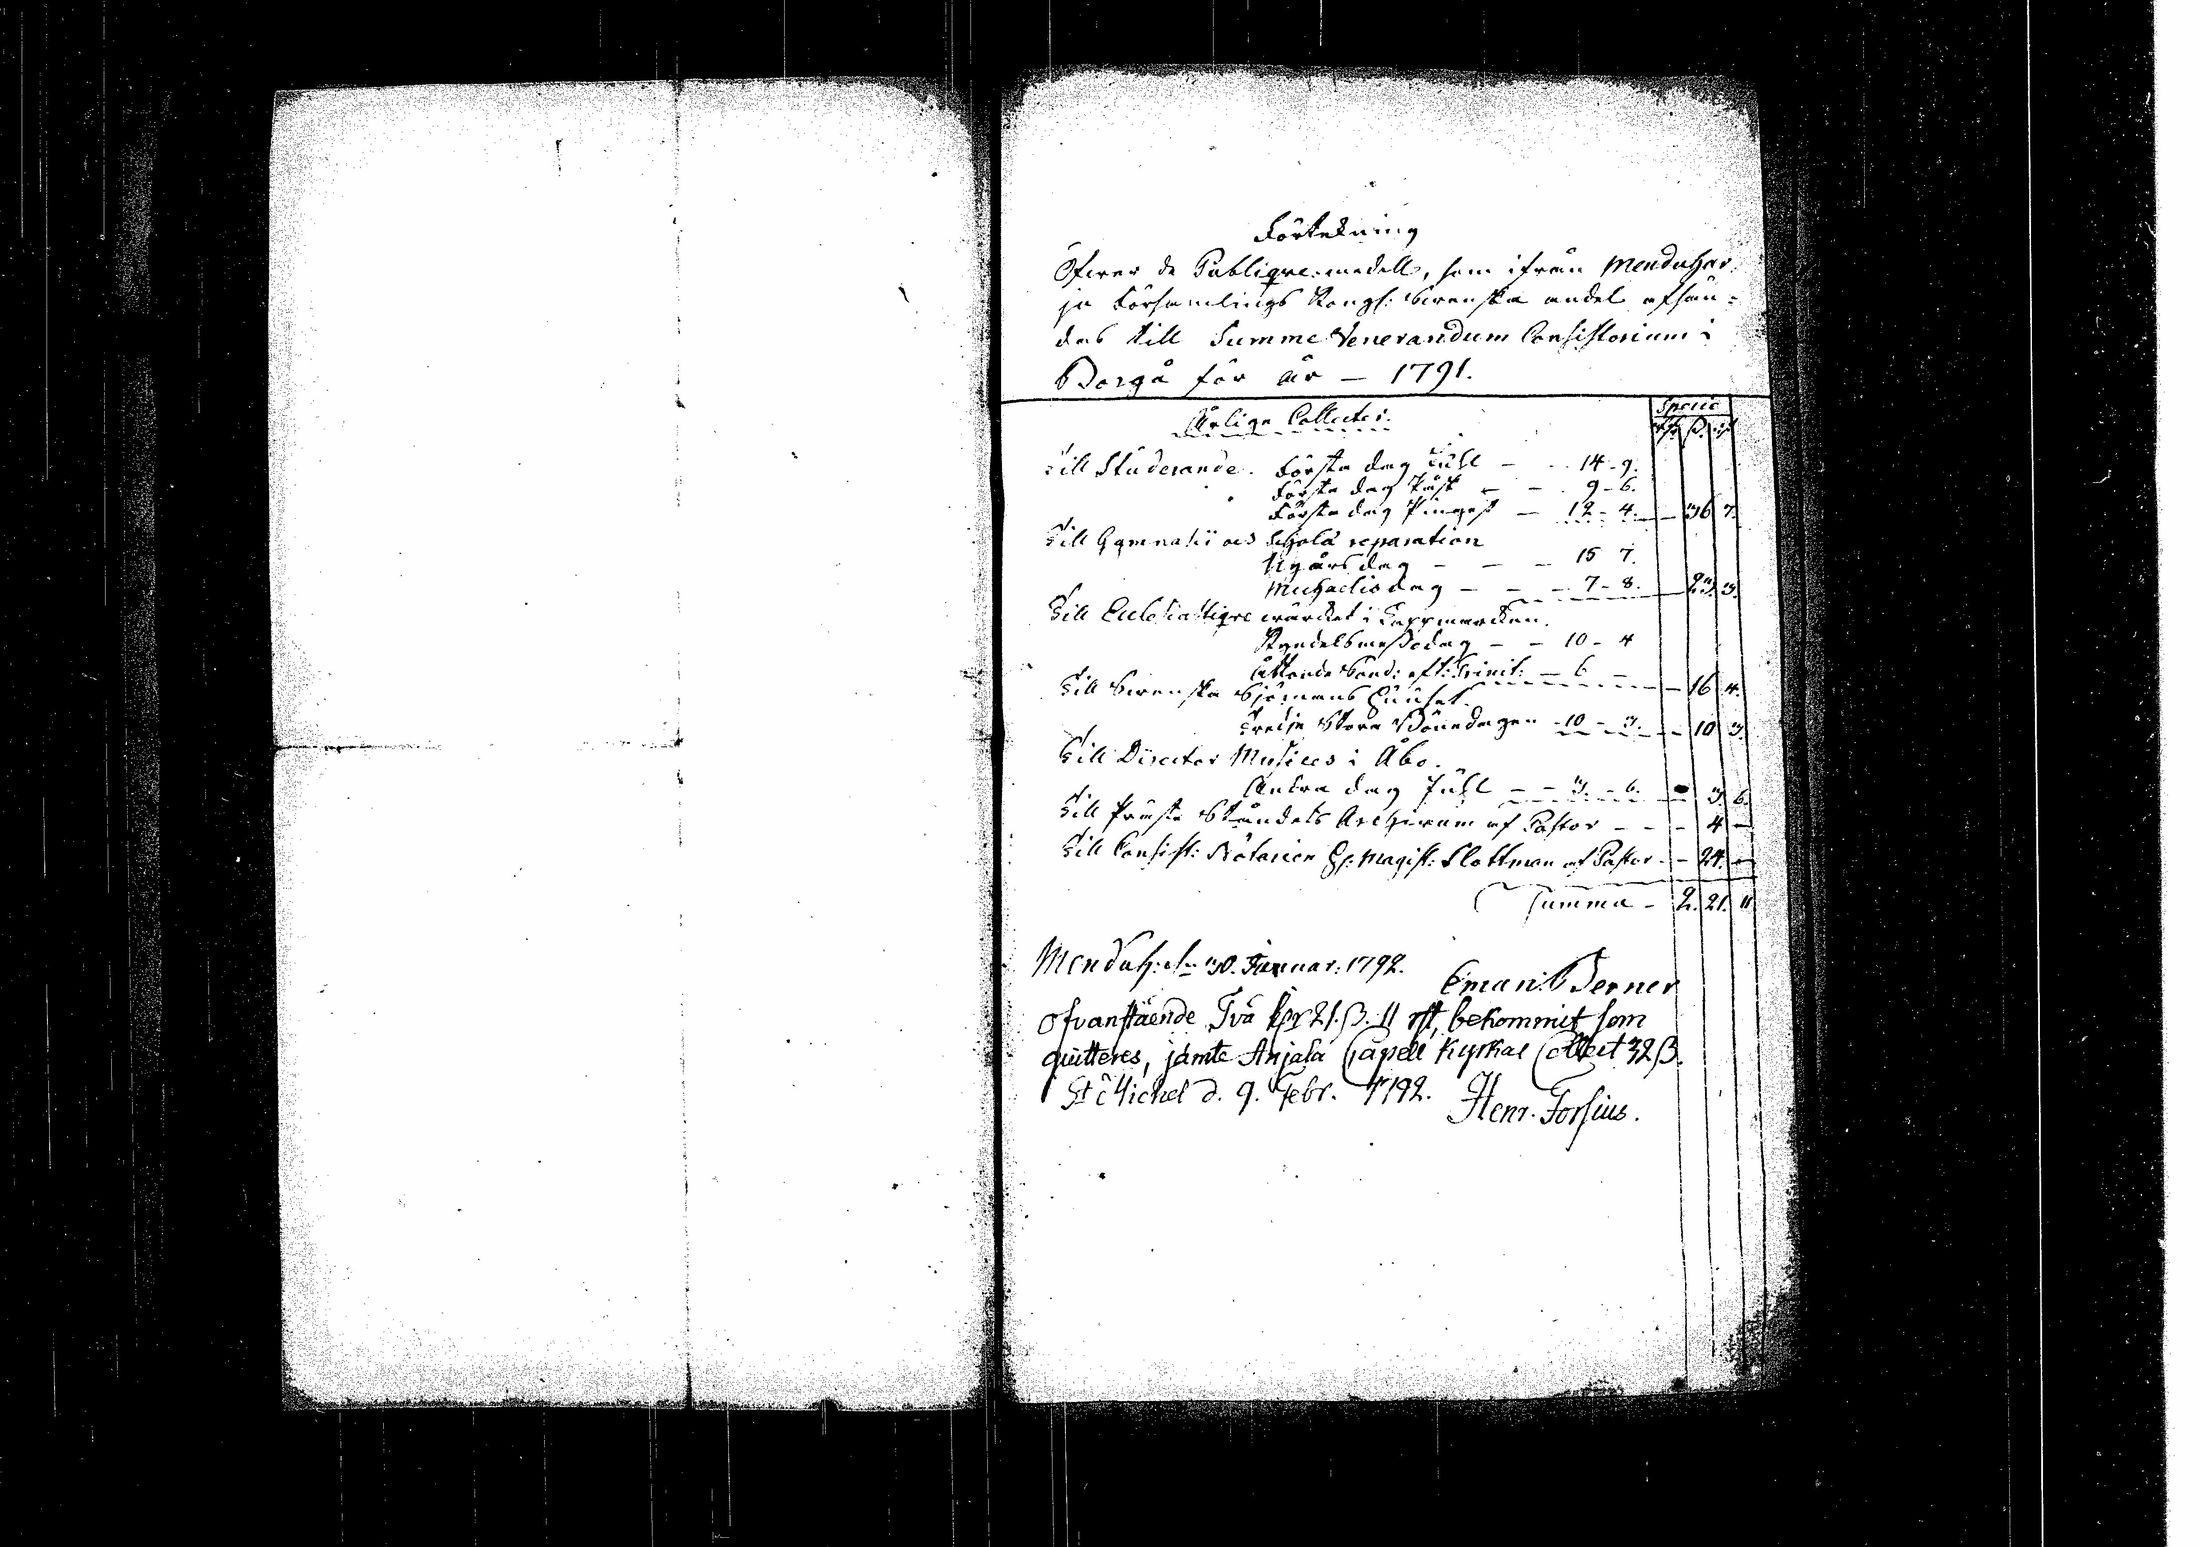 Förtekning
Öfwer de Publiqve medell, som ifrån Menduhar-
ju Församlings Kongl: Swenska andel afsän-
des till Summe Venerandum Consistorium i
Borgå för år — 1791.
Årlige Collecter.
Specie
Rdr ß. rst
Till Studerande. Första dag Juhl — 14-9.
Första dag Påsk — 9-6.
Första dag Pingst — 12-4. — 36 7.
Till Gymnasii och Schola reparation
Nyårsdag — 15 7.
Michaelisdag — 7-8. — 23. 3.
Till Ecclesiastiqve wärcket i Lappmarcken.
Kyndelsmessodag — 10-4
Åttonde Sönd: eft: Trinit: — 6 — — 16 4.
Till Swenska Sjömans Huuset.
Tredje Stora Bönedagen - 10-3. — 10 3.
Till Director Musices i Åbo.
Andra dag Juhl — 3.-6. 3. 6.
Till Präste Ståndets Archivum af Pastor — 4 —
Till Consist: Notarien H: Magist: Slottman af Pastor — 24. —
Summa — 2. 21. 11
Menduh: d. 30. Januar: 1792.
Eman: Berner
Ofvanstående Två Rdr 21. ß. 11 rst, bekommit som
quitteres, jämte Anjala Capell Kyrkas Collect 32 ß.
St Michel d. 9. Febr. 1792.
Henr. Forsius.